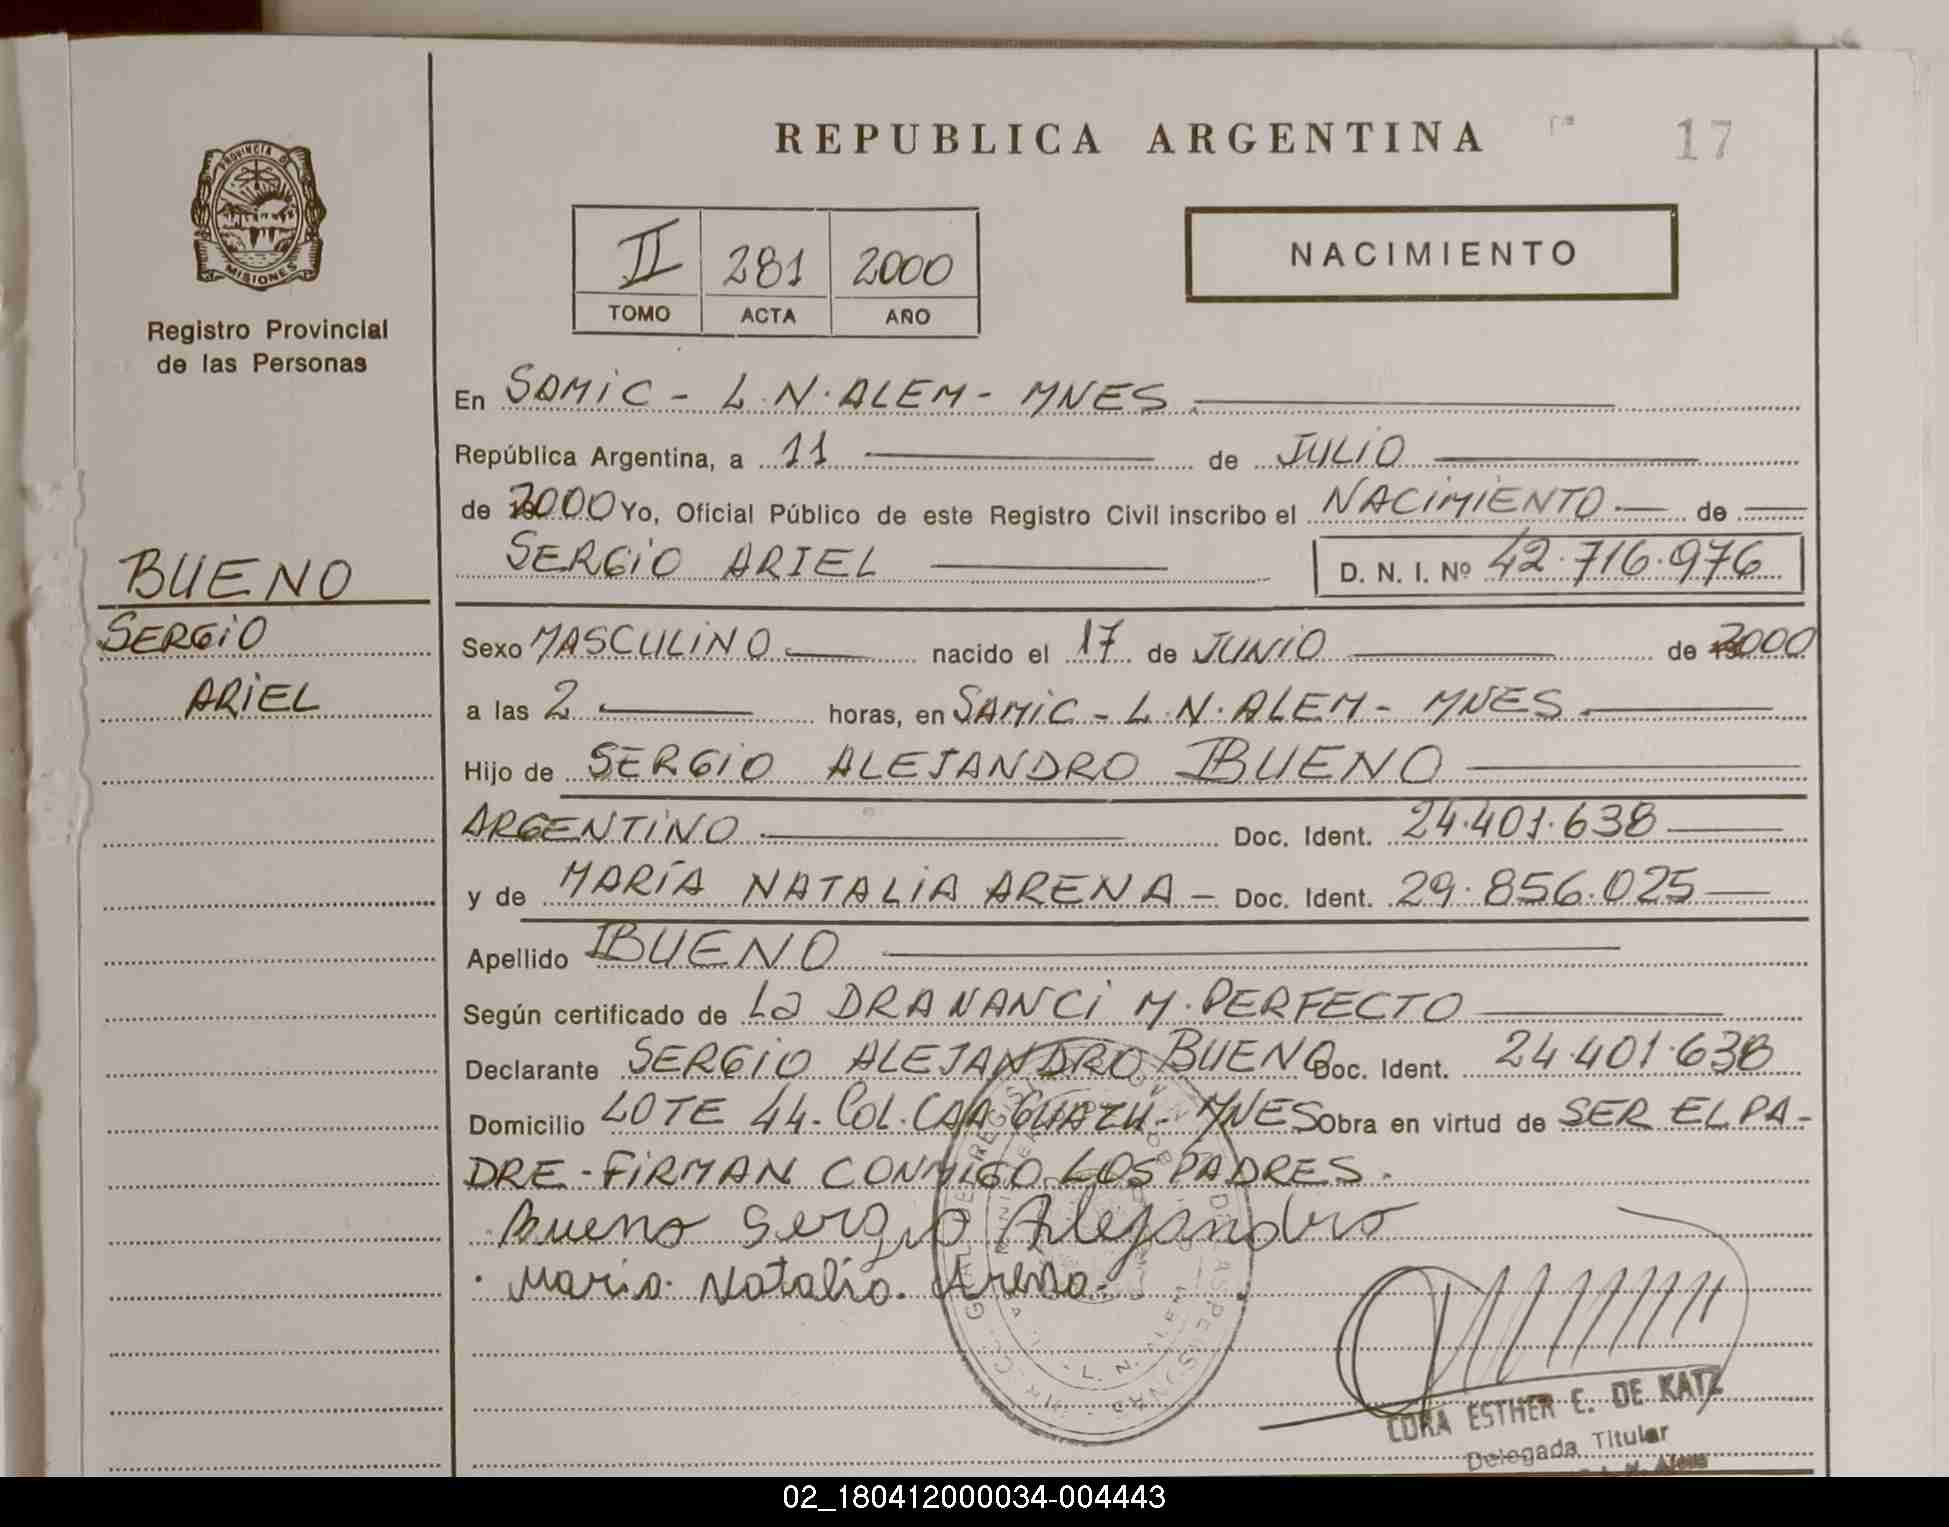 REPUBLICA ARGENTINA
17
PROVINCIA D
MISIONES
Registro Provincial
de las Personas
II 281 2000
TOMO ACTA AÑO
NACIMIENTO
En SAMIC - L.N. ALEM - MNES
República Argentina, a 11 de JULIO
de 2000 Yo, Oficial Público de este Registro Civil inscribo el NACIMIENTO de
SERGIO ARIEL D. N. I. Nº 42.716.976
BUENO
SERGIO
ARIEL
Sexo MASCULINO nacido el 17 de JUNIO de 2000
a las 2 horas, en SAMIC - L.N. ALEM - MNES
Hijo de SERGIO ALEJANDRO BUENO
ARGENTINO Doc. Ident. 24.401.638
y de MARÍA NATALIA ARENA - Doc. Ident. 29.856.025
Apellido BUENO
Según certificado de La DRA NANCI M. PERFECTO
Declarante SERGIO ALEJANDRO BUENO Doc. Ident. 24.401.638
Domicilio LOTE 44 - COL. CAA GUAZÚ - MNES Obra en virtud de SER EL PA-
DRE - FIRMAN CONMIGO LOS PADRES.
Bueno Sergio Alejandro
Maria Natalia Arena
CORA ESTHER E. DE KATZ
Delegada Titular
02_180412000034-004443